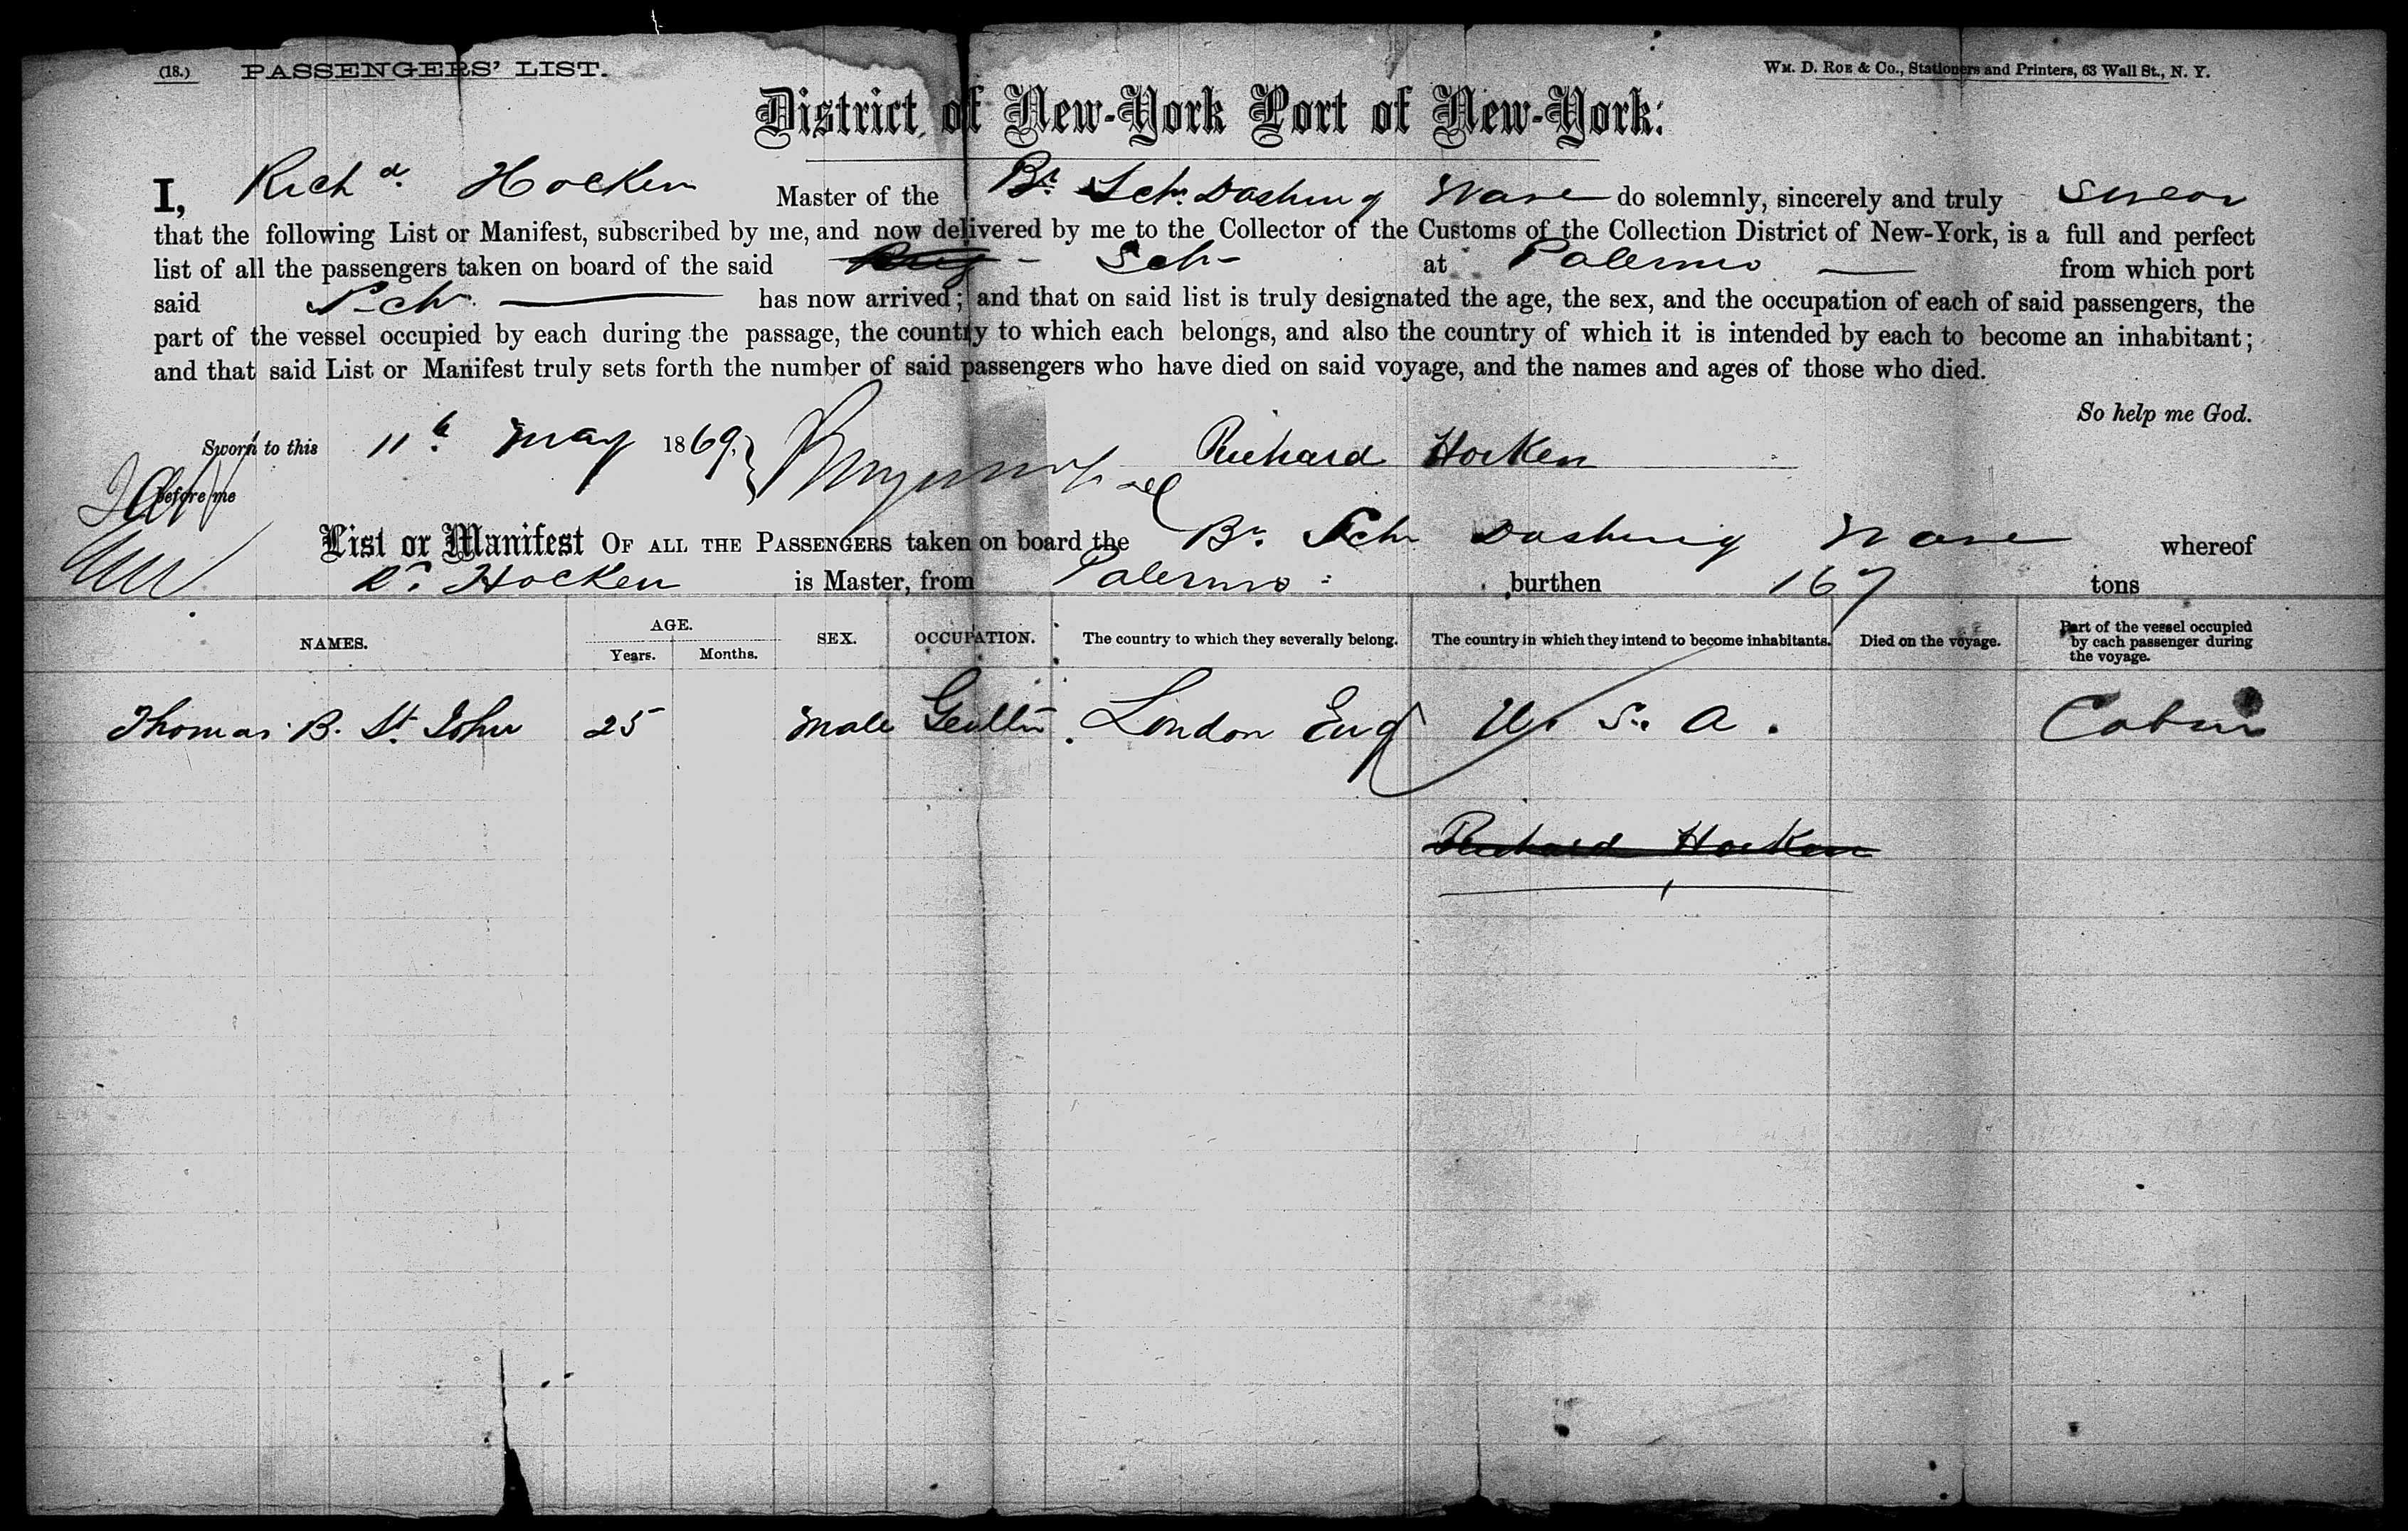 (18.) PASSENGERS' LIST. Wm. D. Roe & Co., Stationers and Printers, 63 Wall St., N. Y.
District of New-York Port of New-York:
I, Richd. Hocken Master of the Br. Schr. Dashing Wave do solemnly, sincerely and truly swear
that the following List or Manifest, subscribed by me, and now delivered by me to the Collector of the Customs of the Collection District of New-York, is a full and perfect
list of all the passengers taken on board of the said Brig - Schr at Palermo from which port
said Schr. has now arrived; and that on said list is truly designated the age, the sex, and the occupation of each of said passengers, the
part of the vessel occupied by each during the passage, the country to which each belongs, and also the country of which it is intended by each to become an inhabitant;
and that said List or Manifest truly sets forth the number of said passengers who have died on said voyage, and the names and ages of those who died.
So help me God.
Sworn to this 11th May 1869. Richard Hocken
before me
List or Manifest OF ALL THE PASSENGERS taken on board the Br. Schr Dashing Wave whereof
Rd. Hocken is Master, from Palermo burthen 167 tons
NAMES. AGE. Years. Months. SEX. OCCUPATION. The country to which they severally belong. The country in which they intend to become inhabitants. Died on the voyage. Part of the vessel occupied by each passenger during the voyage.
Thomas B. St. John 25 Male Gentln. London Eng U. S. A. Cabin
Richard Hocken